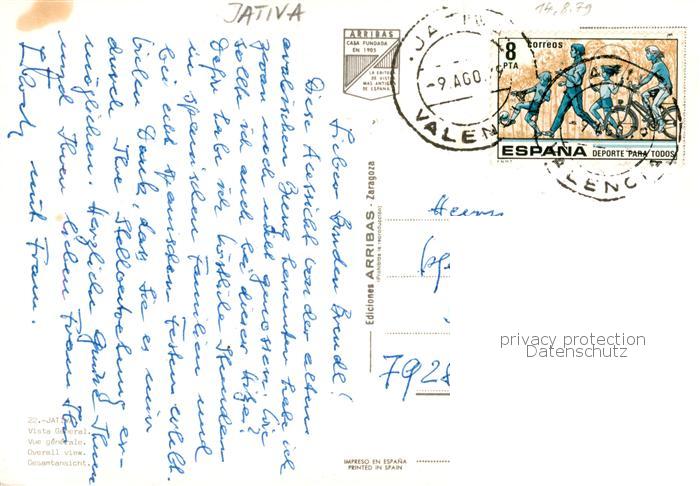 JATIVA
14.8.79
ARRIBAS
CASA FUNDADA
EN 1905
LA EDITORA
DE VISTAS
MAS ANTIGUA
DE ESPAÑA
JA
-9.AGO.
VALENC
8
PTA
correos
ESPAÑA DEPORTE PARA TODOS
F.N.M.T.
VALENCIA
Lieber Bruder Brendl!
Diese Aussicht von der alten
Burg herunter habe ich
mit genossen. Wie
sollte ich auch bei dieser Hitze?
Dafür habe ich köstliche Stunden
in spanischen Familien und
bei echt spanischen Festen erlebt.
Vielen Dank, dass Sie es mir
durch Ihre Stellvertretung er-
möglichen. Herzliche Grüße Ihnen
und Ihrer lieben Frau. Ihr
mit Frau.
Ediciones ARRIBAS - Zaragoza
(Prohibida la reproducción)
Herrn
792
22.-JATIVA
Vista General.
Vue générale.
Overall view.
Gesamtansicht.
IMPRESO EN ESPAÑA
PRINTED IN SPAIN
privacy protection
Datenschutz